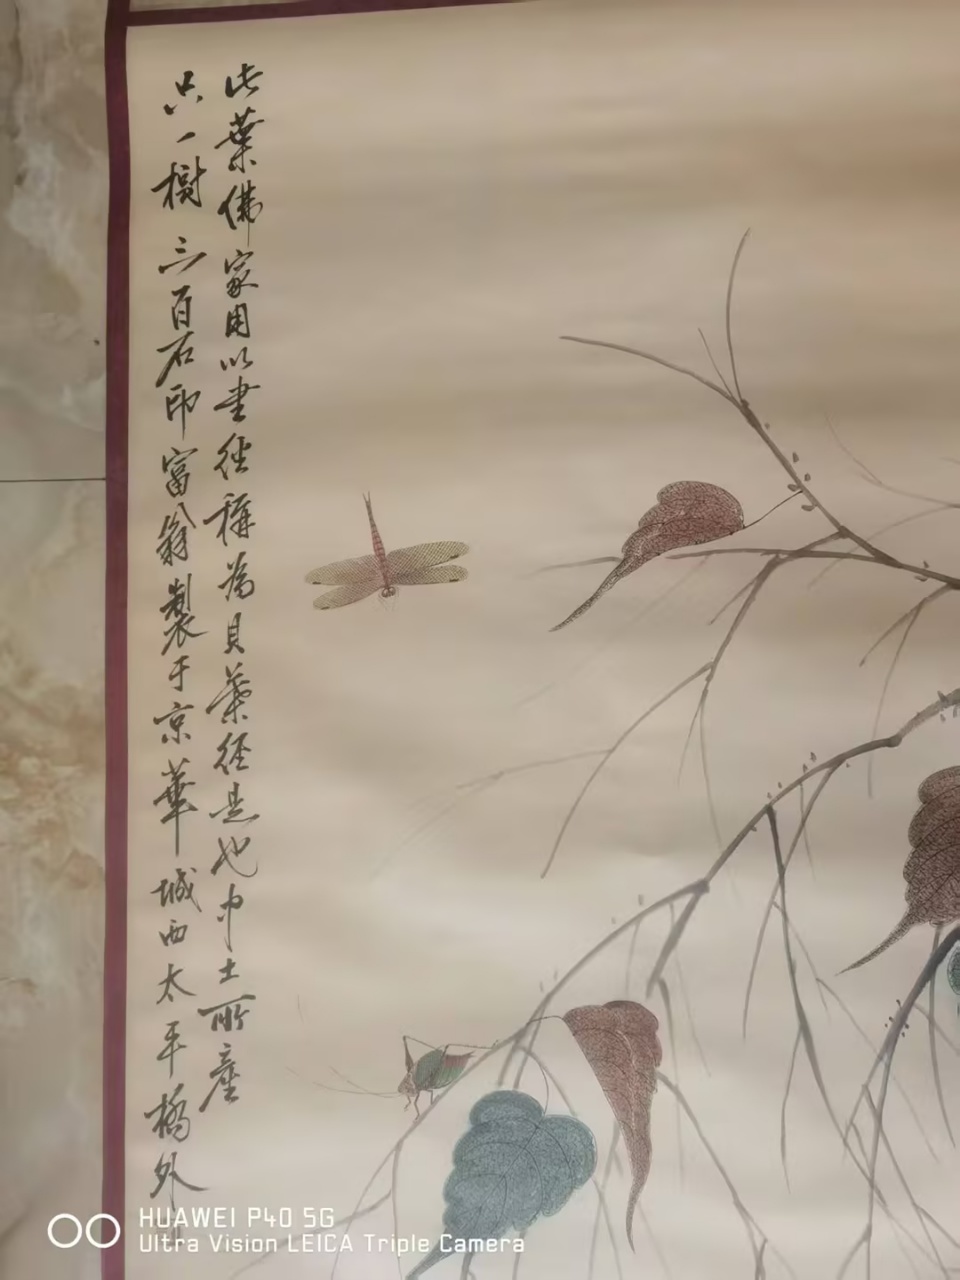 此葉佛家用以書經稱為貝葉經是也中土所產
只一樹三百石印富翁製于京華城西太平橋外
HUAWEI P40 5G
Ultra Vision LEICA Triple Camera